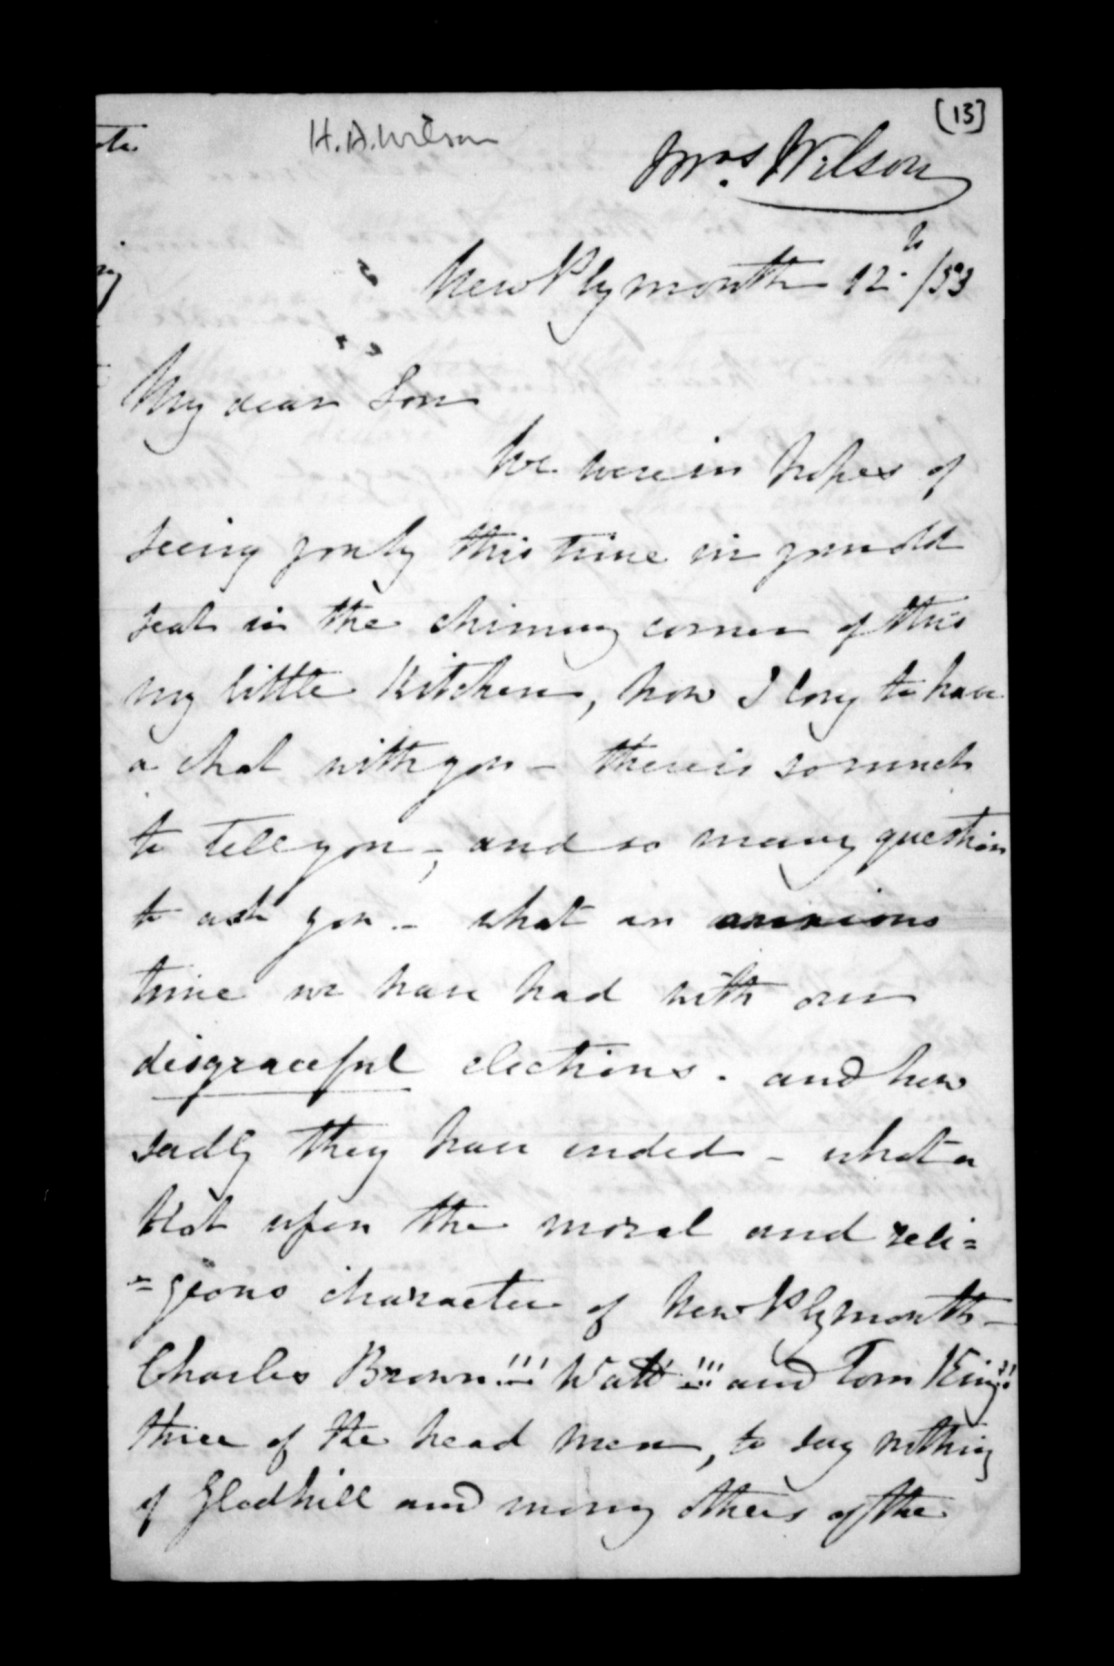 [13]
H. A. Wilson
Mrs. Wilson
New Plymouth 12.th/53
My dear Son
We were in hopes of
seeing you by this time in your old
seat in the chimney corner of this
my little Kitchen, how I long to have
a chat with you - there is so much
to tell you -, and so many question
to ask you - what an anxious
time we have had with our
disgraceful elections. and how
sadly they have ended - what a
blot upon the moral and reli=
=geous character of New Plymouth -
Charles Brown!!! Watt!!! and Tom King!!
three of the head men, to say nothing
of Gledhill and many others of the